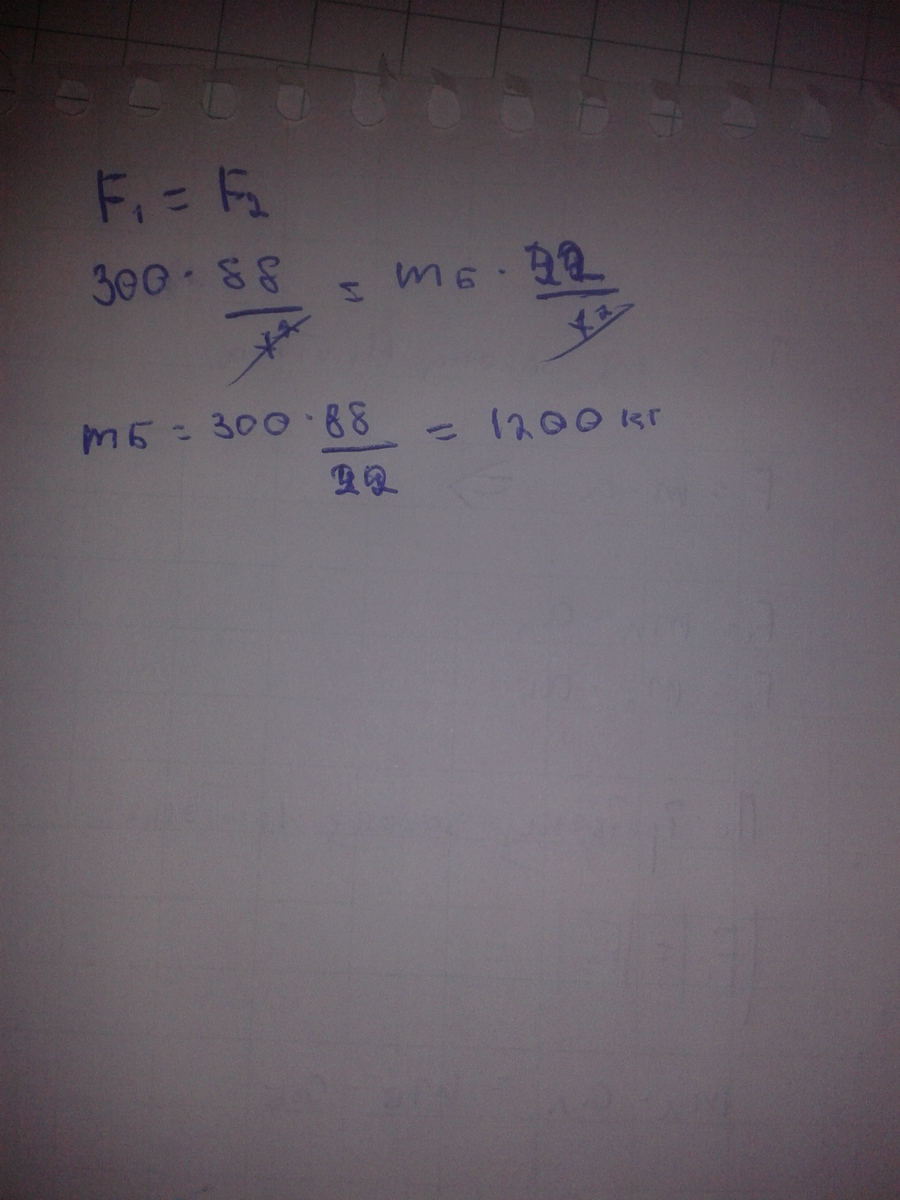 F₁ = F₂
300 · 88/t² = mБ · 22/t²
mБ = 300 · 88/22 = 1200 кг